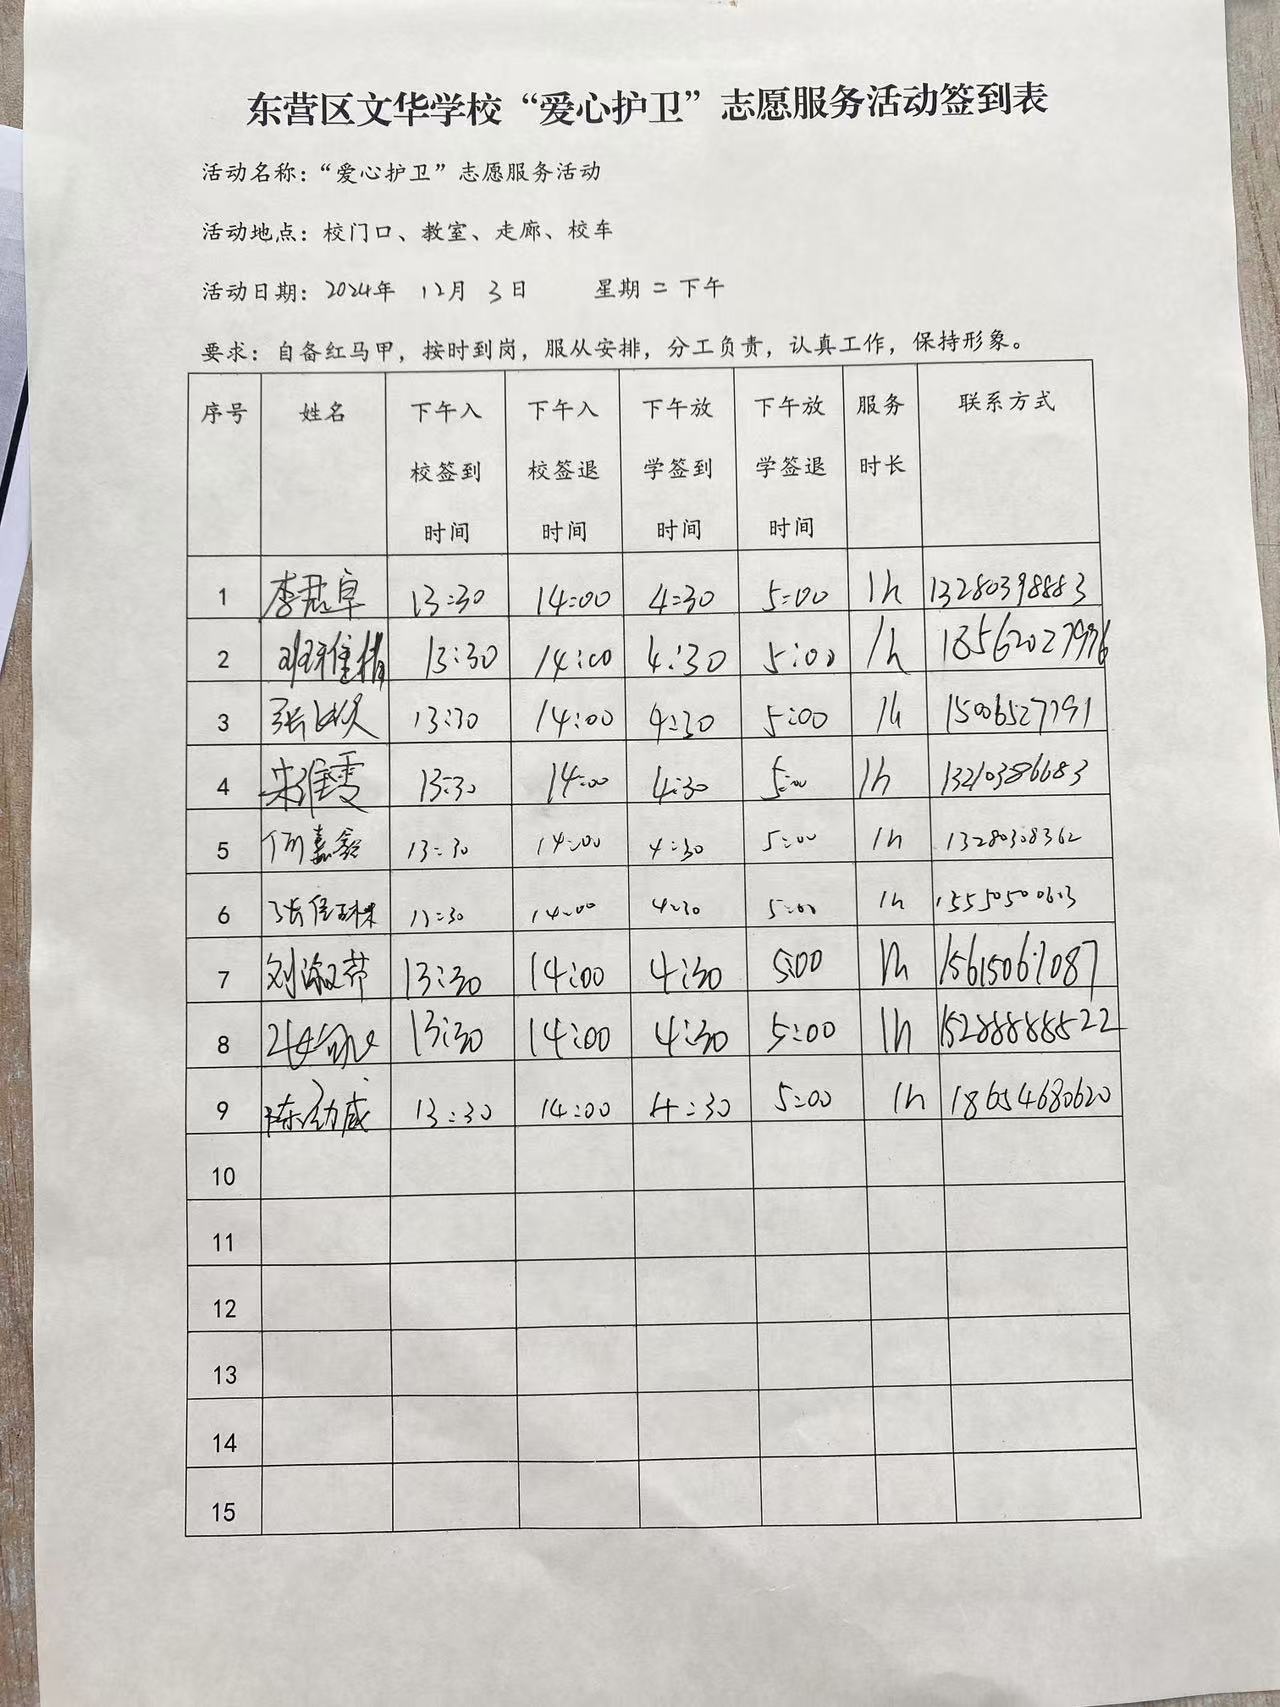 东营区文华学校“爱心护卫”志愿服务活动签到表
活动名称：“爱心护卫”志愿服务活动
活动地点：校门口、教室、走廊、校车
活动日期：2024年 12月 3日 星期二下午
要求：自备红马甲，按时到岗，服从安排，分工负责，认真工作，保持形象。
序号 姓名 下午入校签到时间 下午入校签退时间 下午放学签到时间 下午放学签退时间 服务时长 联系方式
1 李君卓 13:30 14:00 4:30 5:00 1h 13280398883
2 13:30 14:00 4:30 5:00 1h 18562027976
3 13:30 14:00 4:30 5:00 1h 15006527791
4 宋雅雯 13:30 14:00 4:30 5:00 1h 13210386683
5 何嘉鑫 13:30 14:00 4:30 5:00 1h 13280308362
6 13:30 14:00 4:30 5:00 1h
7 刘淑芹 13:30 14:00 4:30 5:00 1h 15615067087
8 13:30 14:00 4:30 5:00 1h 15288888522
9 13:30 14:00 4:30 5:00 1h 18654680620
10
11
12
13
14
15